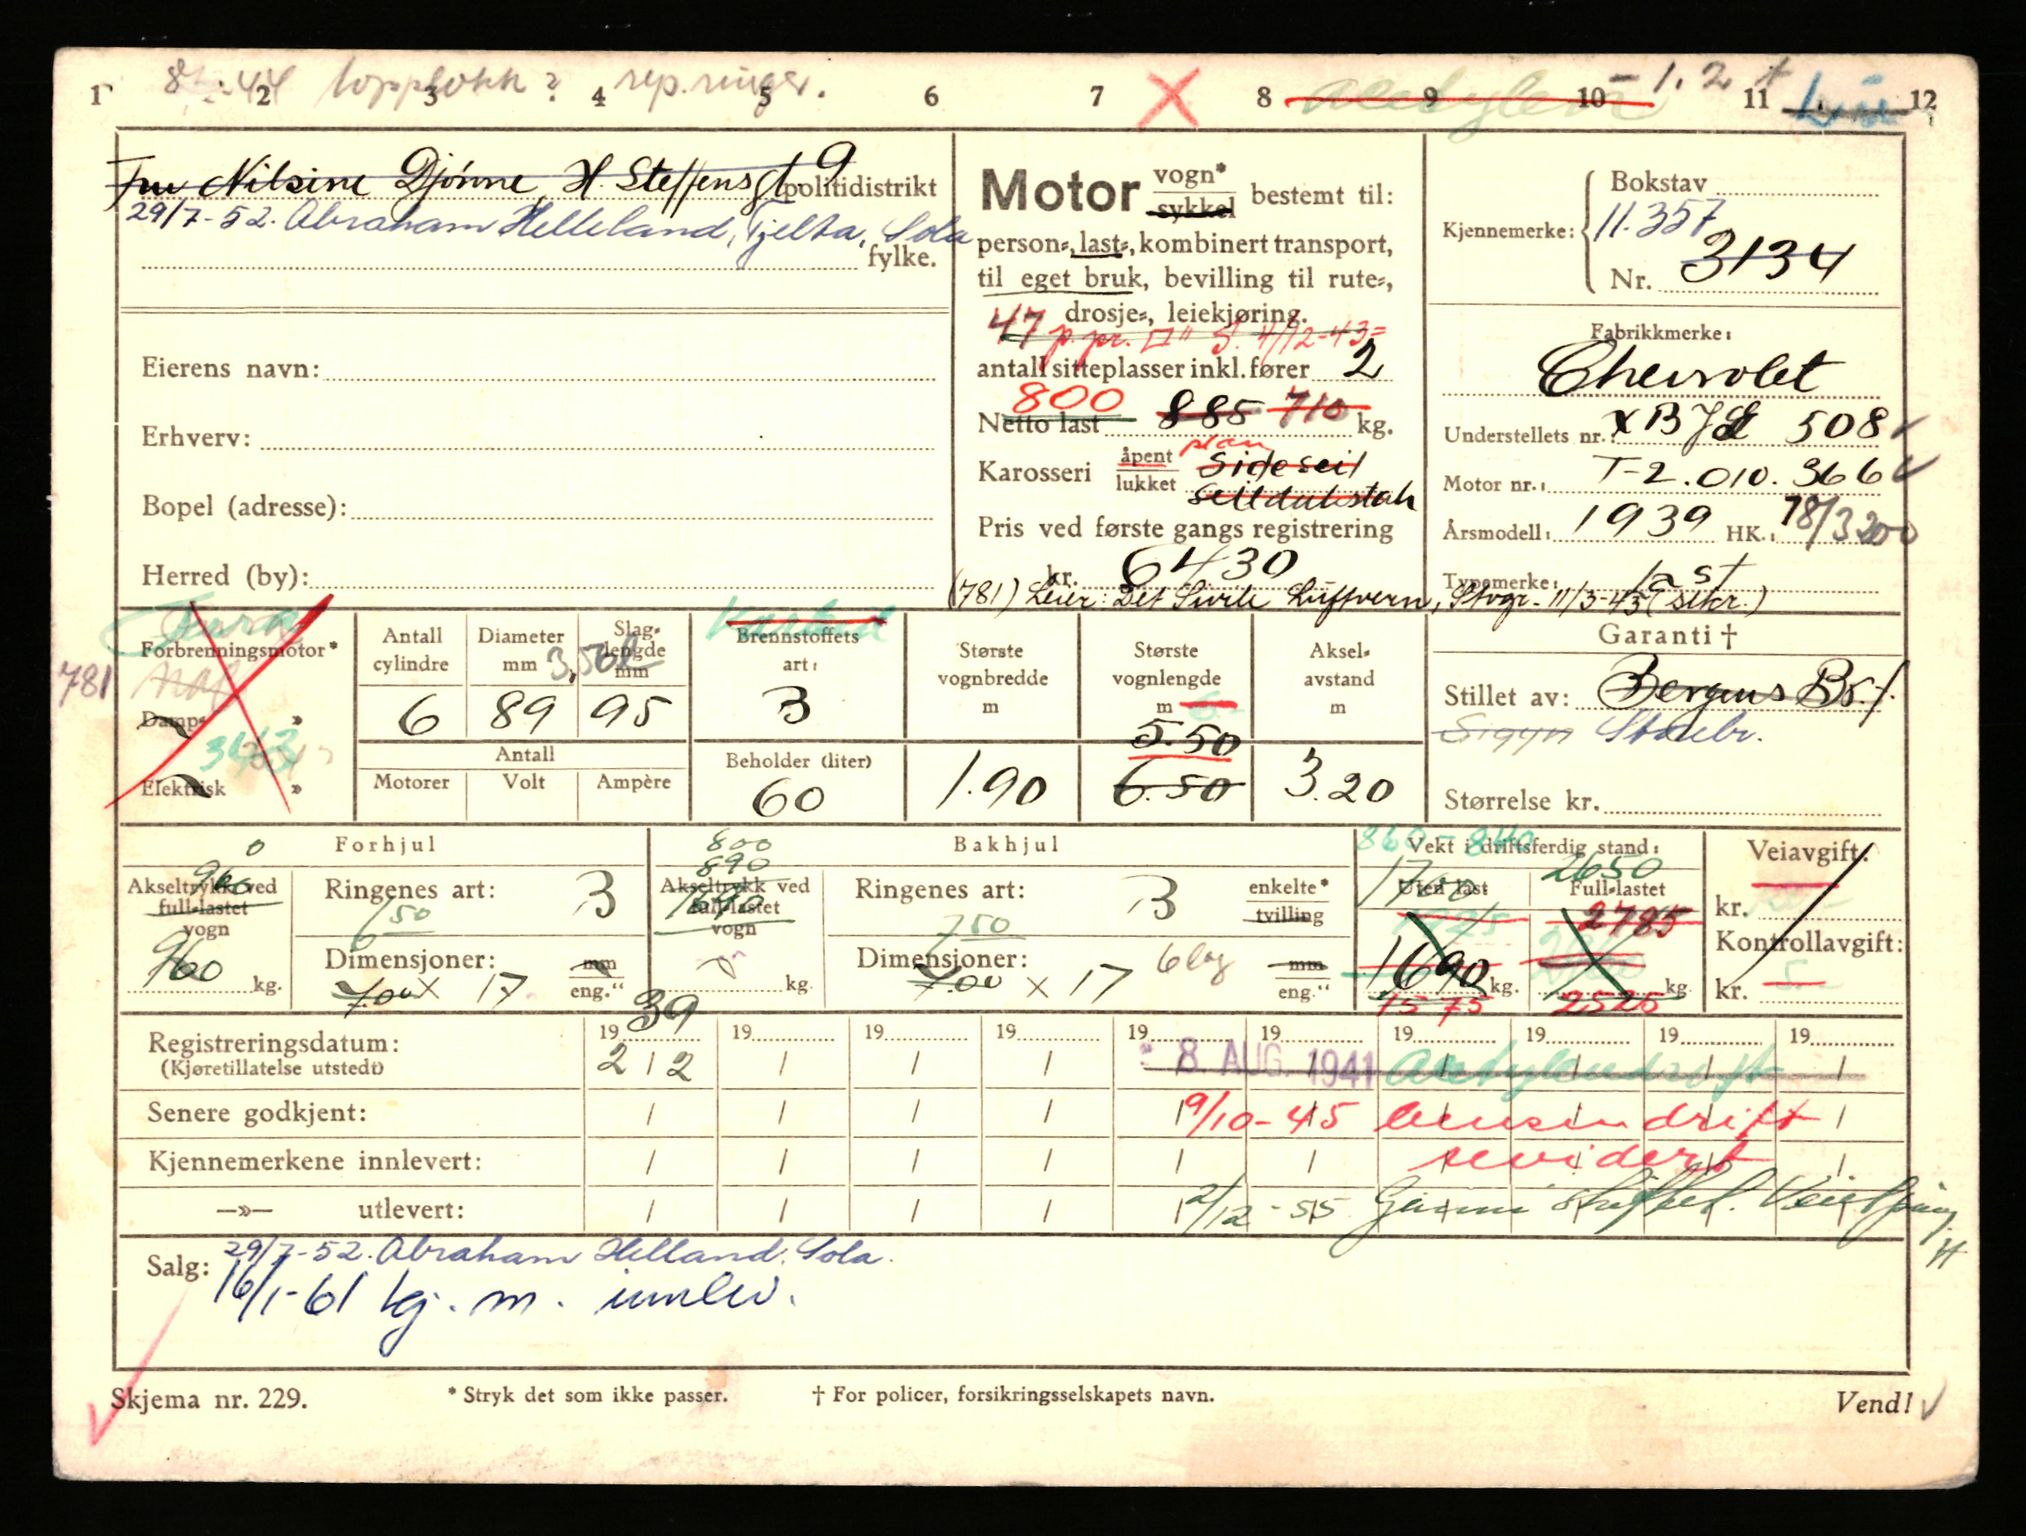 1 2 3 4 5 6 7 8 9 10 11 12
rep. ringer.
Acetylen
Fru Nilsine Djönne, H. Steffensgt. 9
politidistrikt
29/7-52. Abraham Helleland, Tjelta, Sola
fylke.
Eierens navn:
Erhverv:
Bopel (adresse):
Herred (by):
Motor vogn* sykkel bestemt til:
person-, last-, kombinert transport,
til eget bruk, bevilling til rute-,
drosje-, leiekjøring.
47 p.pr. 4/12-43
antall sitteplasser inkl. fører 2
800
Netto last 885 710 kg.
plan
Karosseri åpent lukket Sideseil
Pris ved første gangs registrering
kr. 6430
(781) Leier: Det Sivile Luftvern, Stvgr. 11/3-43
Bokstav
Kjennemerke: 11.357
Nr. 3134
Fabrikkmerke:
Chevrolet
Understellets nr.: 508
Motor nr.: T-2.010.366
Årsmodell: 1939 HK.: 78/3200
Typemerke: last
781
Forbrenningsmotor*
Damp- »
Elektrisk »
Antall cylindre
6
Diameter mm
89
Slag-lengde mm
95
Antall
Motorer Volt Ampère
Brennstoffets art:
B
Beholder (liter)
60
Største vognbredde m
1.90
Største vognlengde m
5.50
6.50
Aksel-avstand m
3.20
Garanti †
Stillet av: Bergens Br.f.
Sigyn Storebr.
Størrelse kr.
Forhjul
Akseltrykk ved full-lastet vogn
960 kg.
Ringenes art: B
650
Dimensjoner: mm eng."
7.00 X 17
Bakhjul
800
890
Akseltrykk ved full-lastet vogn
kg.
Ringenes art: B enkelte* tvilling
750
Dimensjoner: mm eng."
7.00 X 17 6 lag
860 - 840
Vekt i driftsferdig stand:
1700 2650
Uten last Full-lastet
2785
1690 kg. kg.
1575 2525
Veiavgift:
kr.
Kontrollavgift:
kr.
19 39 19 19 19 19 19 19 19 19 19
Registreringsdatum:
(Kjøretillatelse utstedt)
2 / 2
- 8. AUG. 1941 Acetylendrift
Senere godkjent:
9/10-45 bensindrift
Kjennemerkene innlevert:
revidert
—»— utlevert:
2/12-55
Salg: 29/7-52. Abraham Helland, Sola.
16/1-61 kj. m. innlev.
Skjema nr. 229.
* Stryk det som ikke passer.
† For policer, forsikringsselskapets navn.
Vend!